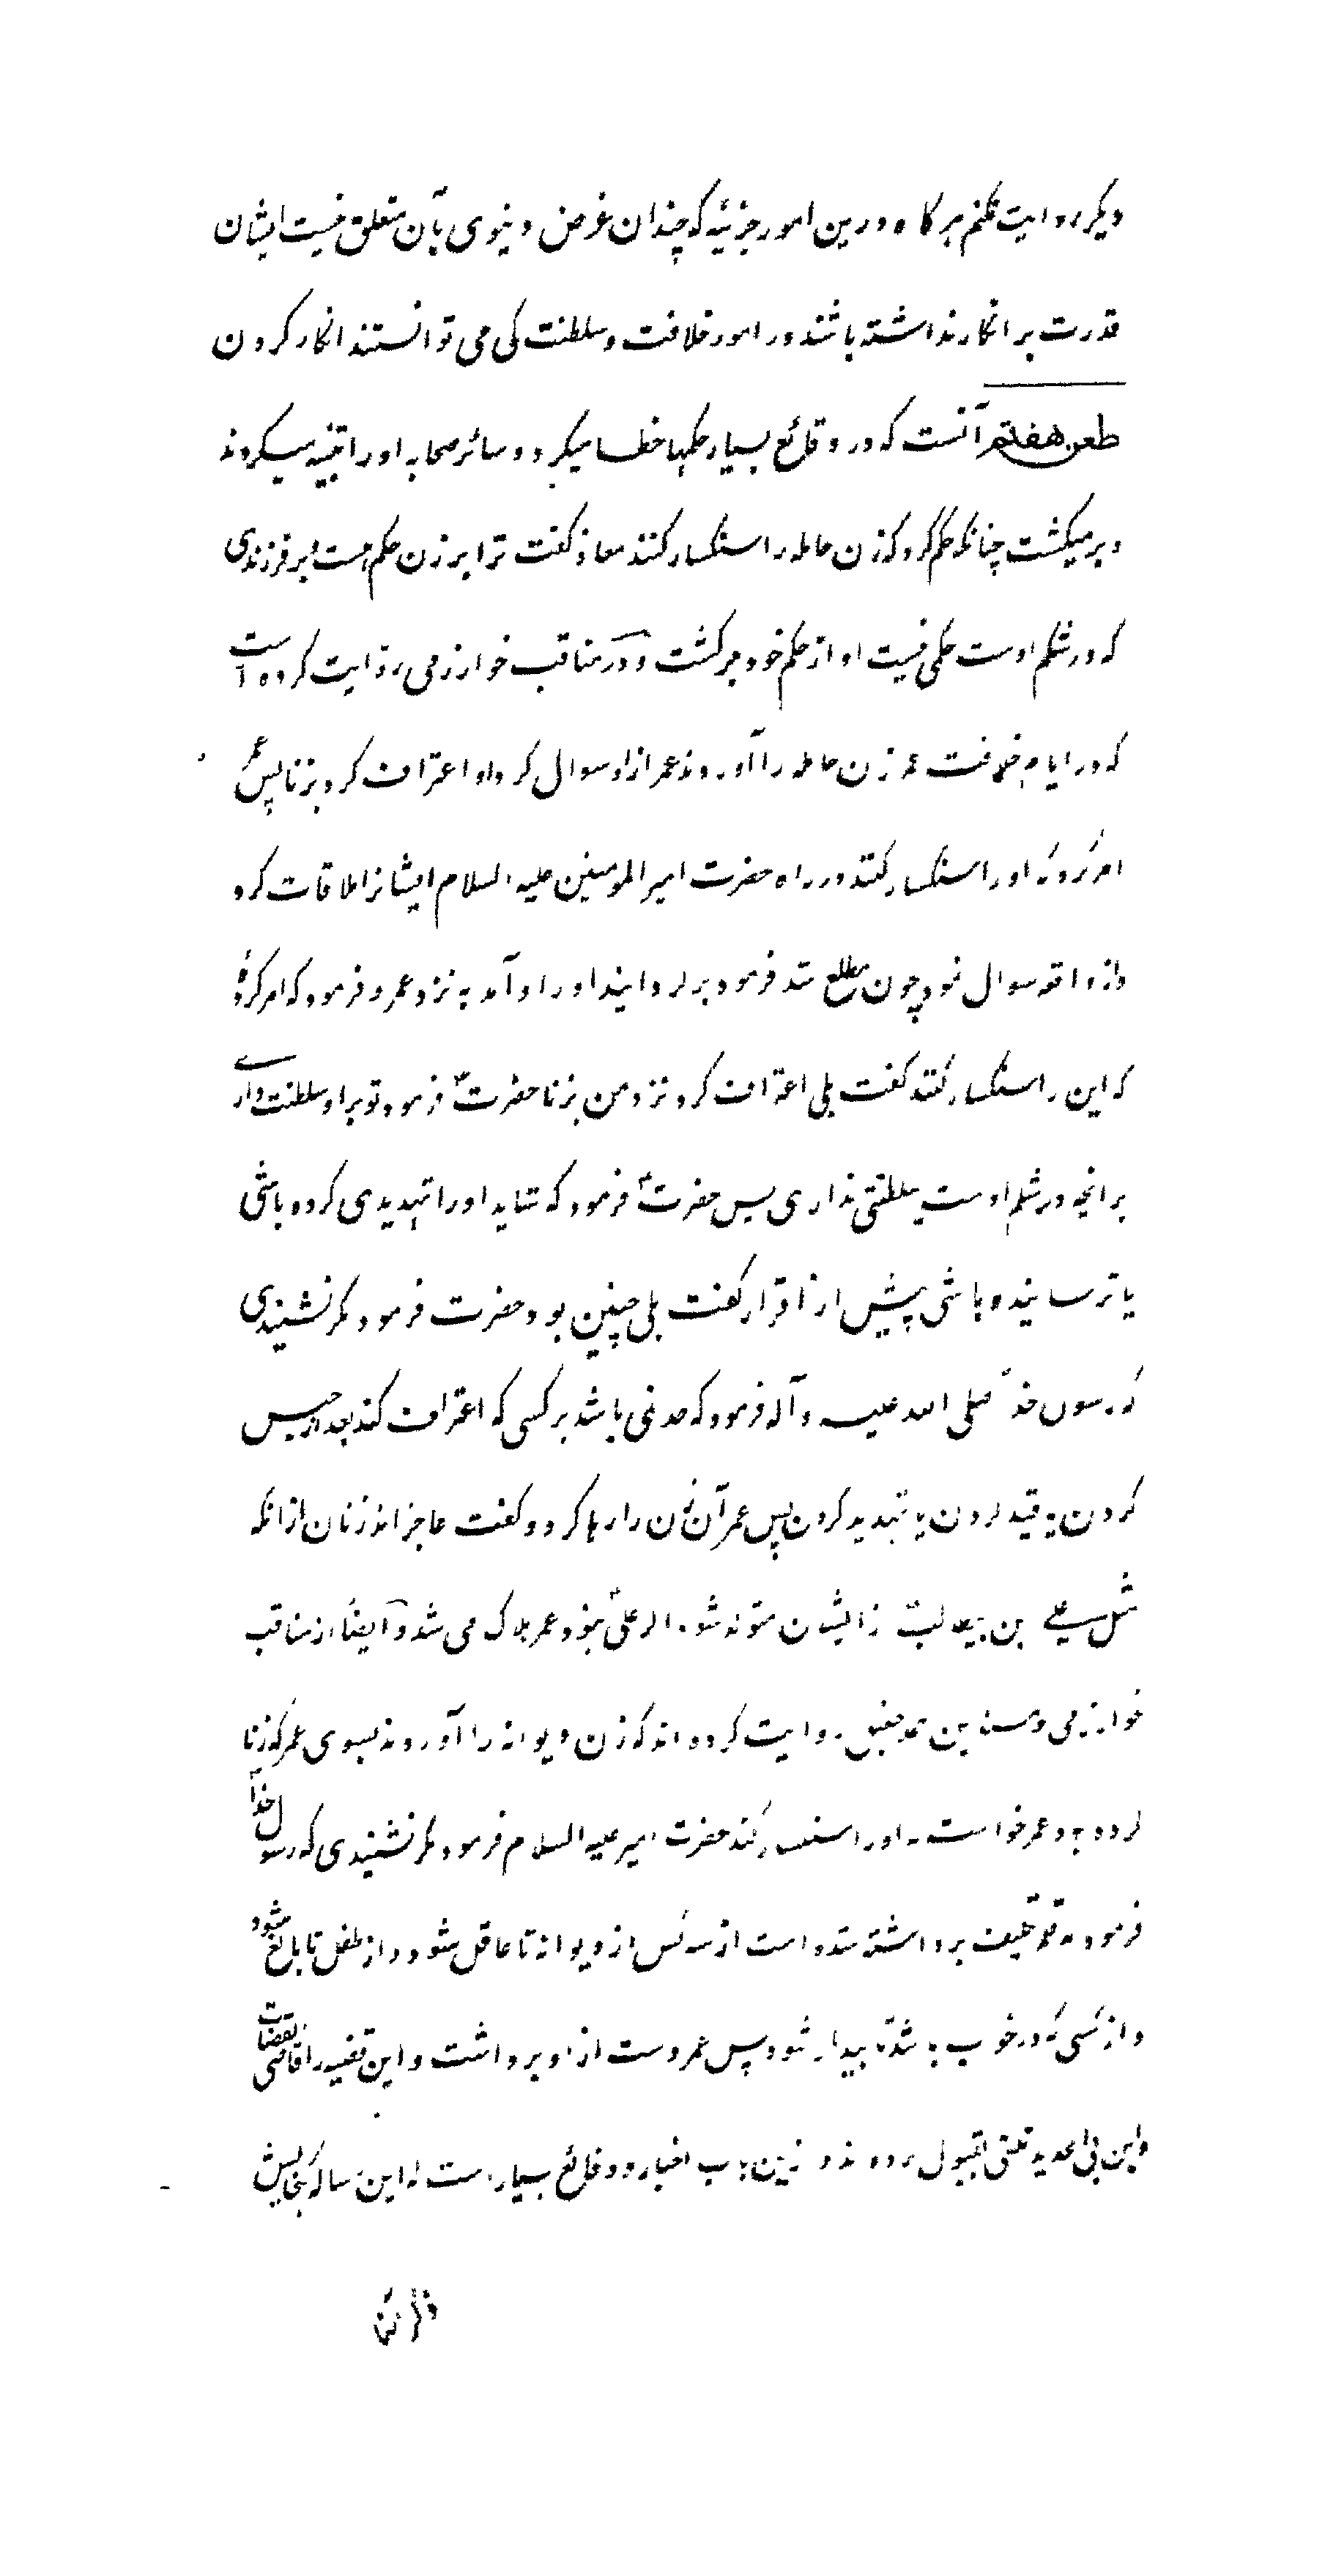 دیگر روایت نکنم هرگاه درین امور جزئیه که چندان غرض دنیوی بآن متعلق نیست ایشان
قدرت بر انکار نداشته باشند در امور خلافت و سلطنت کی می توانستند انکار کردن
طعن هفتم آنست که در وقائع بسیار حکمها خطا میکرد و سائر صحابه او را تنبیه میکردند
و بر میگشت چنانکه حکم کرد که زن حامله را سنگسار کنند معاذ گفت ترا بر زن حکم هست بر فرزندی
که در شکم اوست حکمی نیست او از حکم خود برگشت و در مناقب خوارزمی روایت کرده است
که در ایام خلافت عمر زن حامله را آوردند عمر از او سوال کرد او اعتراف کرد بزنا پس عمر
امر کرد که او را سنگسار کنند در راه حضرت امیر المومنین علیه السلام ایشانرا ملاقات کرد
و از واقعه سوال نمود چون مطلع شد فرمود برگردانید او را و آمد به نزد عمر و فرمود که امر کردهٔ
که این را سنگسار کنند گفت بلی اعتراف کرد نزد من بزنا حضرتؑ فرمود تو بر او سلطنت داری
بر انچه در شکم اوست سلطنتی نداری پس حضرتؑ فرمود که شاید او را تهدیدی کرده باشی
یا ترسانیده باشی پیش از اقرار گفت بلی چنین بود حضرت فرمود مگر نشنیدی
که رسول خدا صلی الله علیه و آله فرمود که حد نمی باشد بر کسی که اعتراف کند بعد از حبس
کردن یا قید کردن یا تهدید کردن پس عمر آن زن را رها کرد و گفت عاجز اند زنان از انکه
مثل علی بن ابیطالبؑ از ایشان متولد شود اگر علیؑ نبود عمر هلاک می شد و ایضاً از مناقب
خوارزمی و مسند ابن حنبل روایت کرده اند که زن دیوانه را آوردند بسوی عمر که زنا
کرده بود عمر خواست که او را سنگسار کند حضرت امیر علیه السلام فرمود مگر نشنیدی که رسول خداؐ
فرموده قلم تکلیف برداشته شده است از سه کس از دیوانه تا عاقل شود و از طفل تا بالغ شود
و از کسی که در خواب باشد تا بیدار شود پس عمر دست از او برداشت و این قضیه را قاضی القضات
و ابن ابی الحدید تلقی بقبول کرده اند و ازین باب اخبار و وقائع بسیار است که این رساله گنجایش